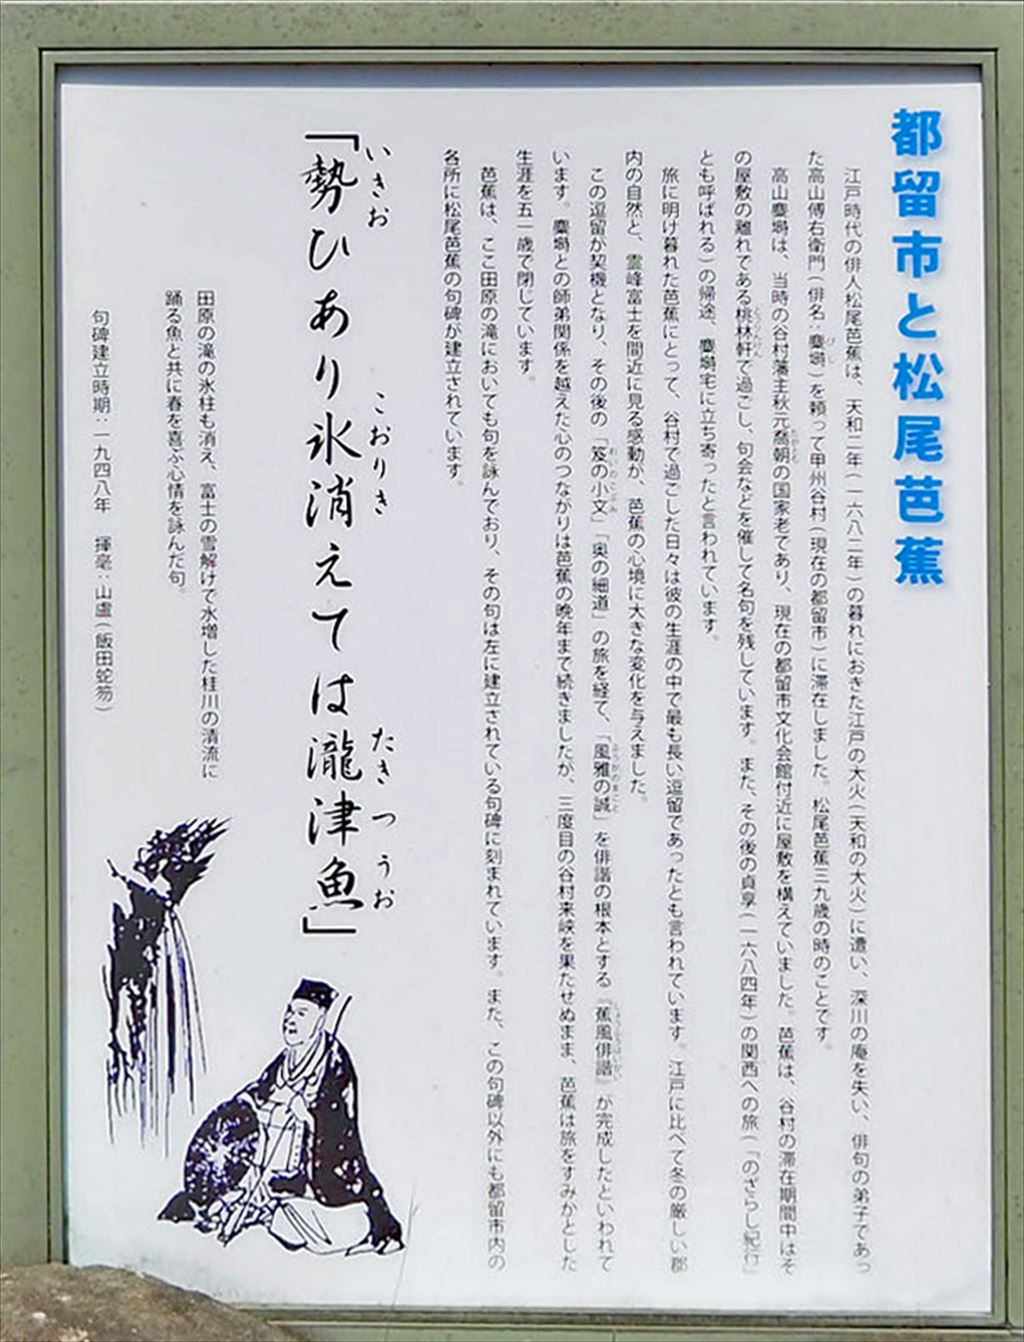 都留市と松尾芭蕉
江戸時代の俳人松尾芭蕉は、天和二年(一六八二年)の暮れにおきた江戸の大火(天和の大火)に遭い、深川の庵を失い、俳句の弟子であっ
た高山傅右衛門(俳名:麋塒)を頼って甲州谷村(現在の都留市)に滞在しました。松尾芭蕉三九歳の時のことです。
高山麋塒は、当時の谷村藩主秋元喬朝の国家老であり、現在の都留市文化会館付近に屋敷を構えていました。芭蕉は、谷村の滞在期間中はそ
の屋敷の離れである桃林軒で過ごし、句会などを催して名句を残しています。また、その後の貞享(一六八四年)の関西への旅(「のざらし紀行」
とも呼ばれる)の帰途、麋塒宅に立ち寄ったと言われています。
旅に明け暮れた芭蕉にとって、谷村で過ごした日々は彼の生涯の中で最も長い逗留であったとも言われています。江戸に比べて冬の厳しい郡
内の自然と、霊峰富士を間近に見る感動が、芭蕉の心境に大きな変化を与えました。
この逗留が契機となり、その後の「笈の小文」「奥の細道」の旅を経て、「風雅の誠」を俳諧の根本とする『蕉風俳諧』が完成したといわれて
います。麋塒との師弟関係を越えた心のつながりは芭蕉の晩年まで続きましたが、三度目の谷村来峡を果たせぬまま、芭蕉は旅をすみかとした
生涯を五一歳で閉じています。
芭蕉は、ここ田原の滝においても句を詠んでおり、その句は左に建立されている句碑に刻まれています。また、この句碑以外にも都留市内の
各所に松尾芭蕉の句碑が建立されています。
いきお こおりき たきつうお
「勢ひあり氷消えては瀧津魚」
田原の滝の氷柱も消え、富士の雪解けで水増した桂川の清流に
踊る魚と共に春を喜ぶ心情を詠んだ句。
句碑建立時期:一九四八年 揮毫:山盧(飯田蛇笏)